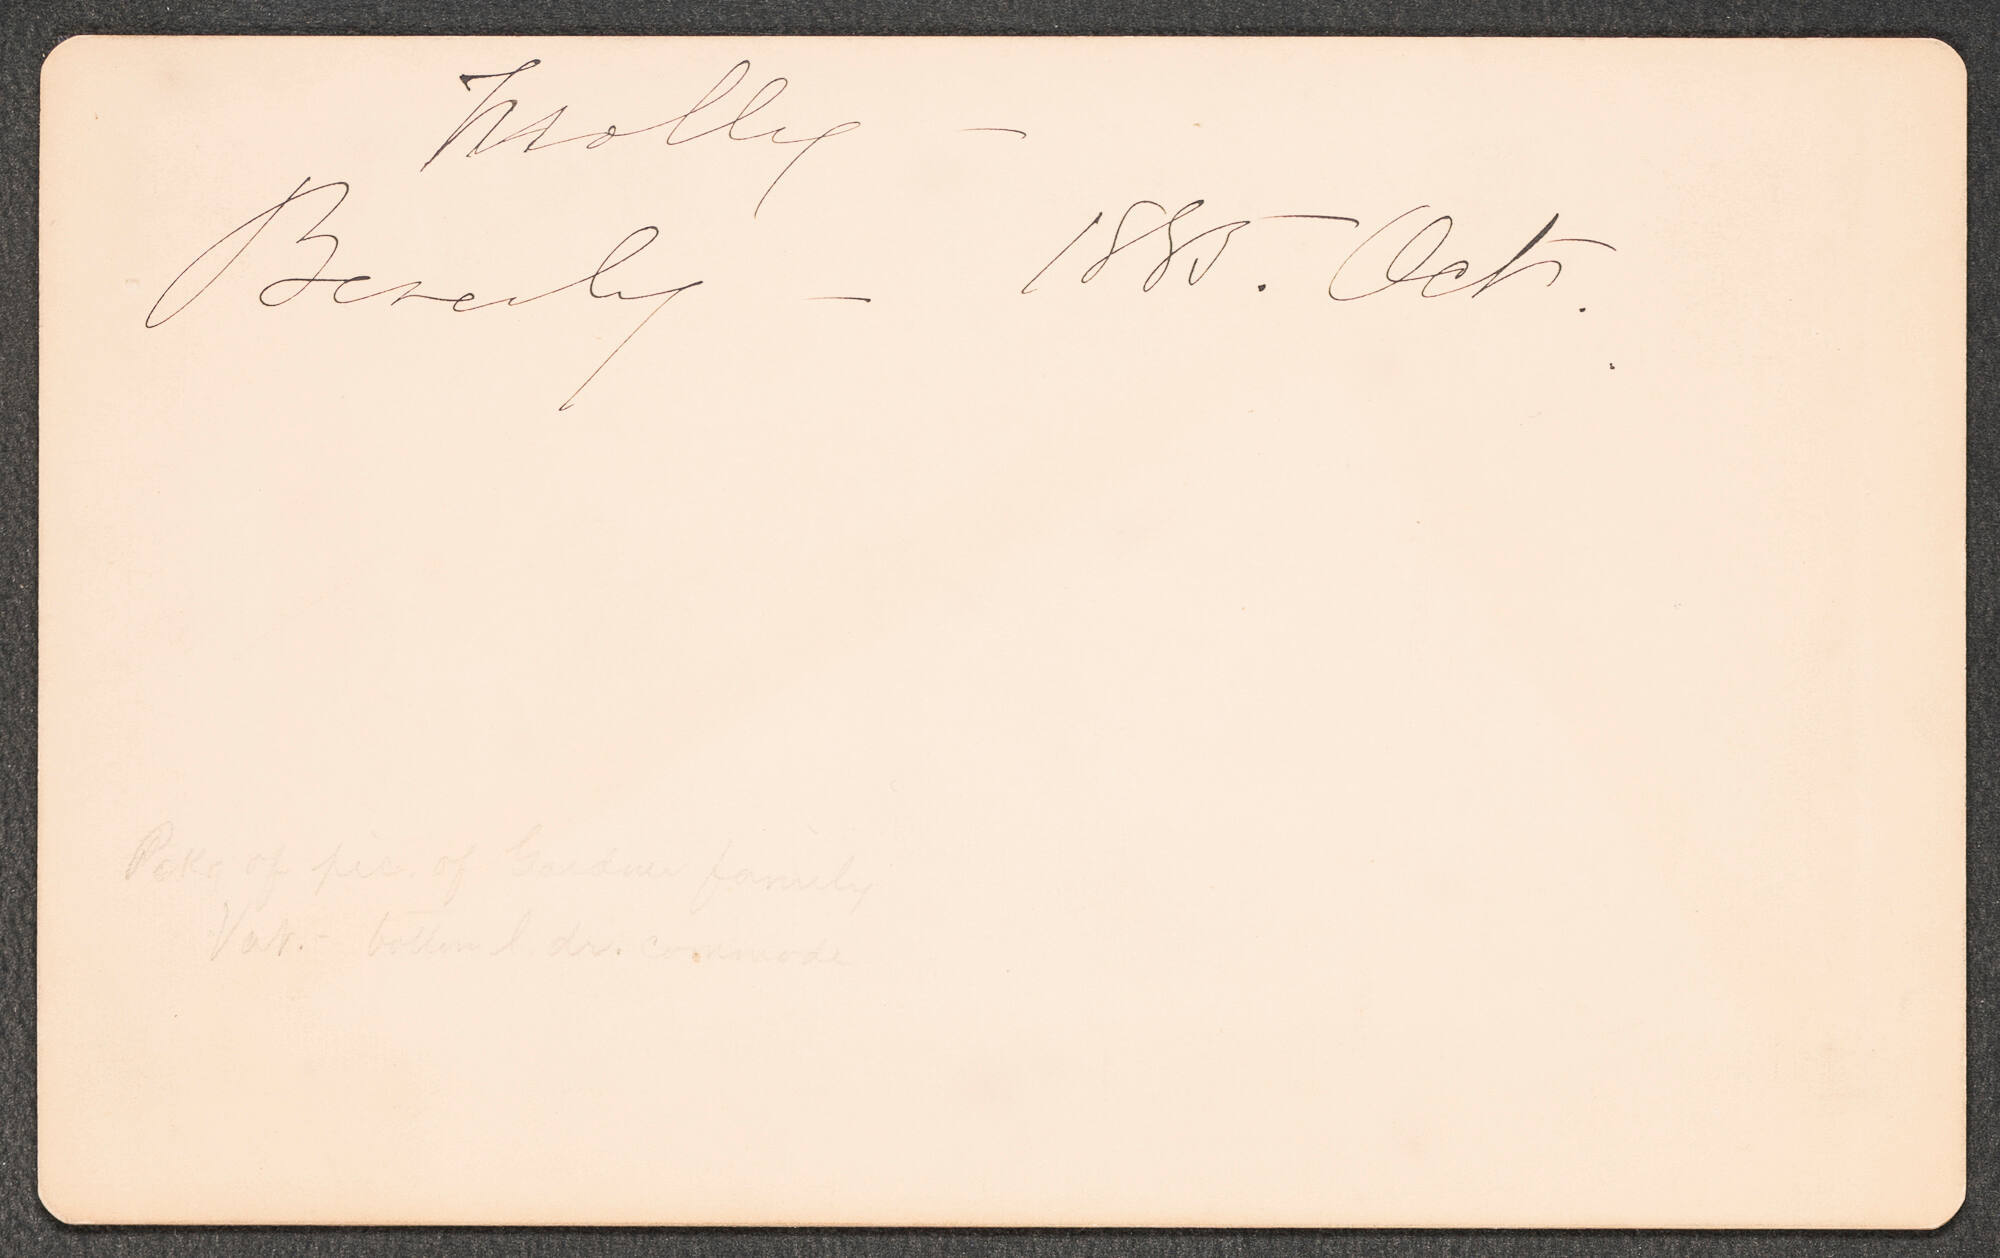 Molly —
Beverly — 1885. Oct.
Pckg of pic. of Gardner family
Vat. - bottom l. dr. commode